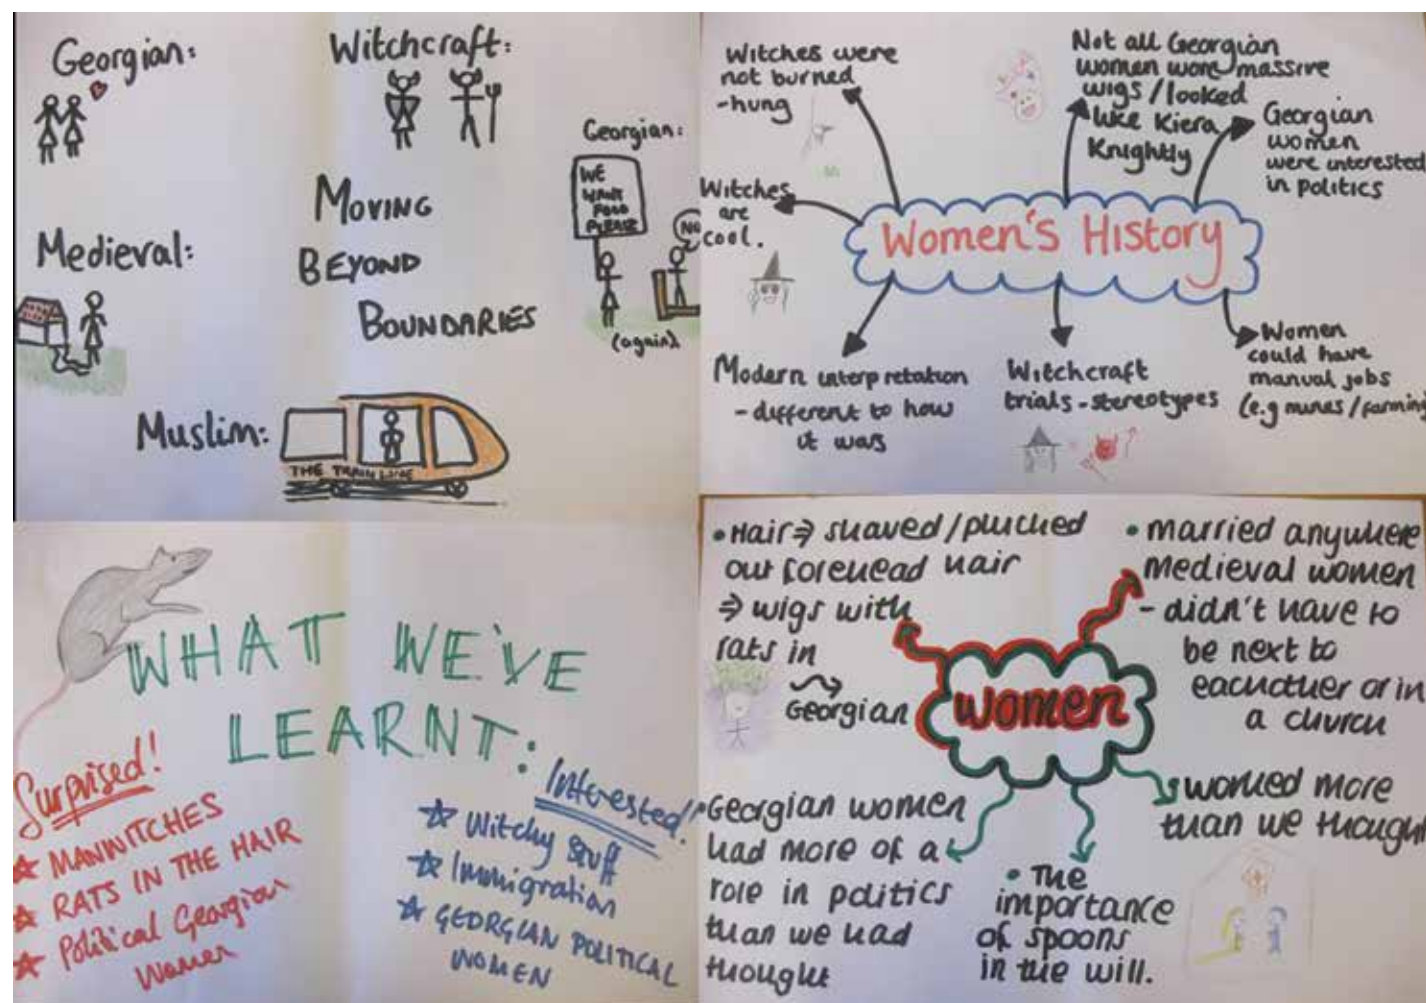 Georgian:
Witchcraft:
Georgian:
WE
WANT
FOOD
PLEASE
NO
(again)
MOVING
BEYOND
BOUNDARIES
Medieval:
Muslim:
THE TRAIN LINE
Witches were
not burned
-hung
Not all Georgian
women wore massive
wigs/looked
like Kiera
Knightly
Georgian
women
were interested
in politics
Witches
are
cool.
Women's History
Modern interpretation
- different to how
it was
Witchcraft
trials-stereotypes
Women
could have
manual jobs
(e.g mines/farming
WHAT WE'VE
LEARNT:
Surprised!
MANWITCHES
RATS IN THE HAIR
Political Georgian
Women
Interested!
Witchy Stuff
Immigration
GEORGIAN POLITICAL
WOMEN
• Hair ⇒ shaved/plucked
out forehead hair
⇒ wigs with
rats in
Georgian
• married anywhere
medieval women
- didn't have to
be next to
eachother or in
a church
women
Georgian women
had more of a
role in politics
than we had
thought
• The
importance
of spoons
in the will.
worked more
than we thought